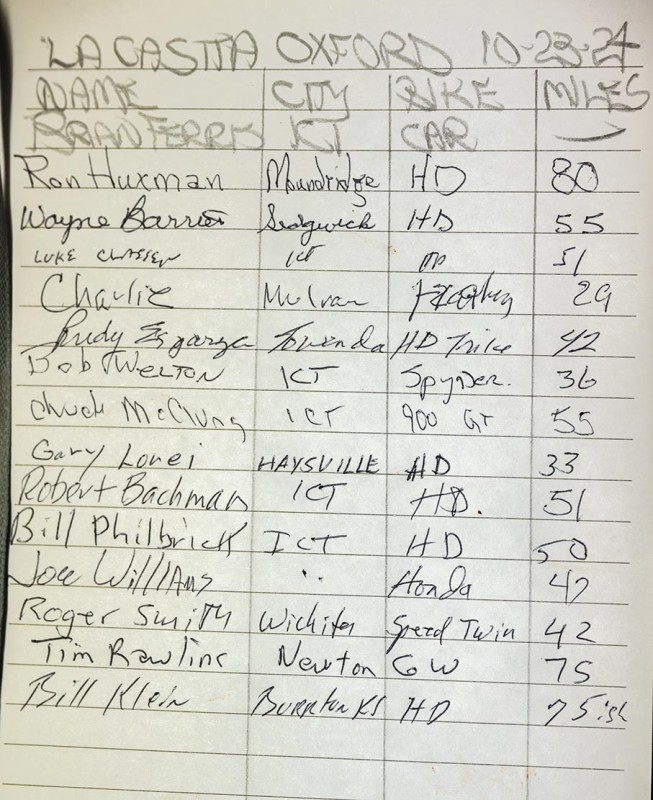 LA CASITA OXFORD 10-23-24
NAME CITY BIKE MILES
BRAD FERRIS ICT CAR —
Ron Huxman Moundridge HD 80
Wayne Barrier Sedgwick HD 55
LUKE CLASSEN ICT 51
Charlie Mulvan 29
Rudy Esgarza Towanda HD Trike 42
Bob Welton ICT Spyder. 36
Chuck McClung ICT 900 GT 55
Gary Lonei HAYSVILLE HD 33
Robert Bachman ICT HD. 51
Bill Philbrick ICT HD 50
Joe Williams " Honda 47
Roger Smith Wichita Speed Twin 42
Tim Rawlins Newton GW 75
Bill Klein Burrton KS HD 75ish